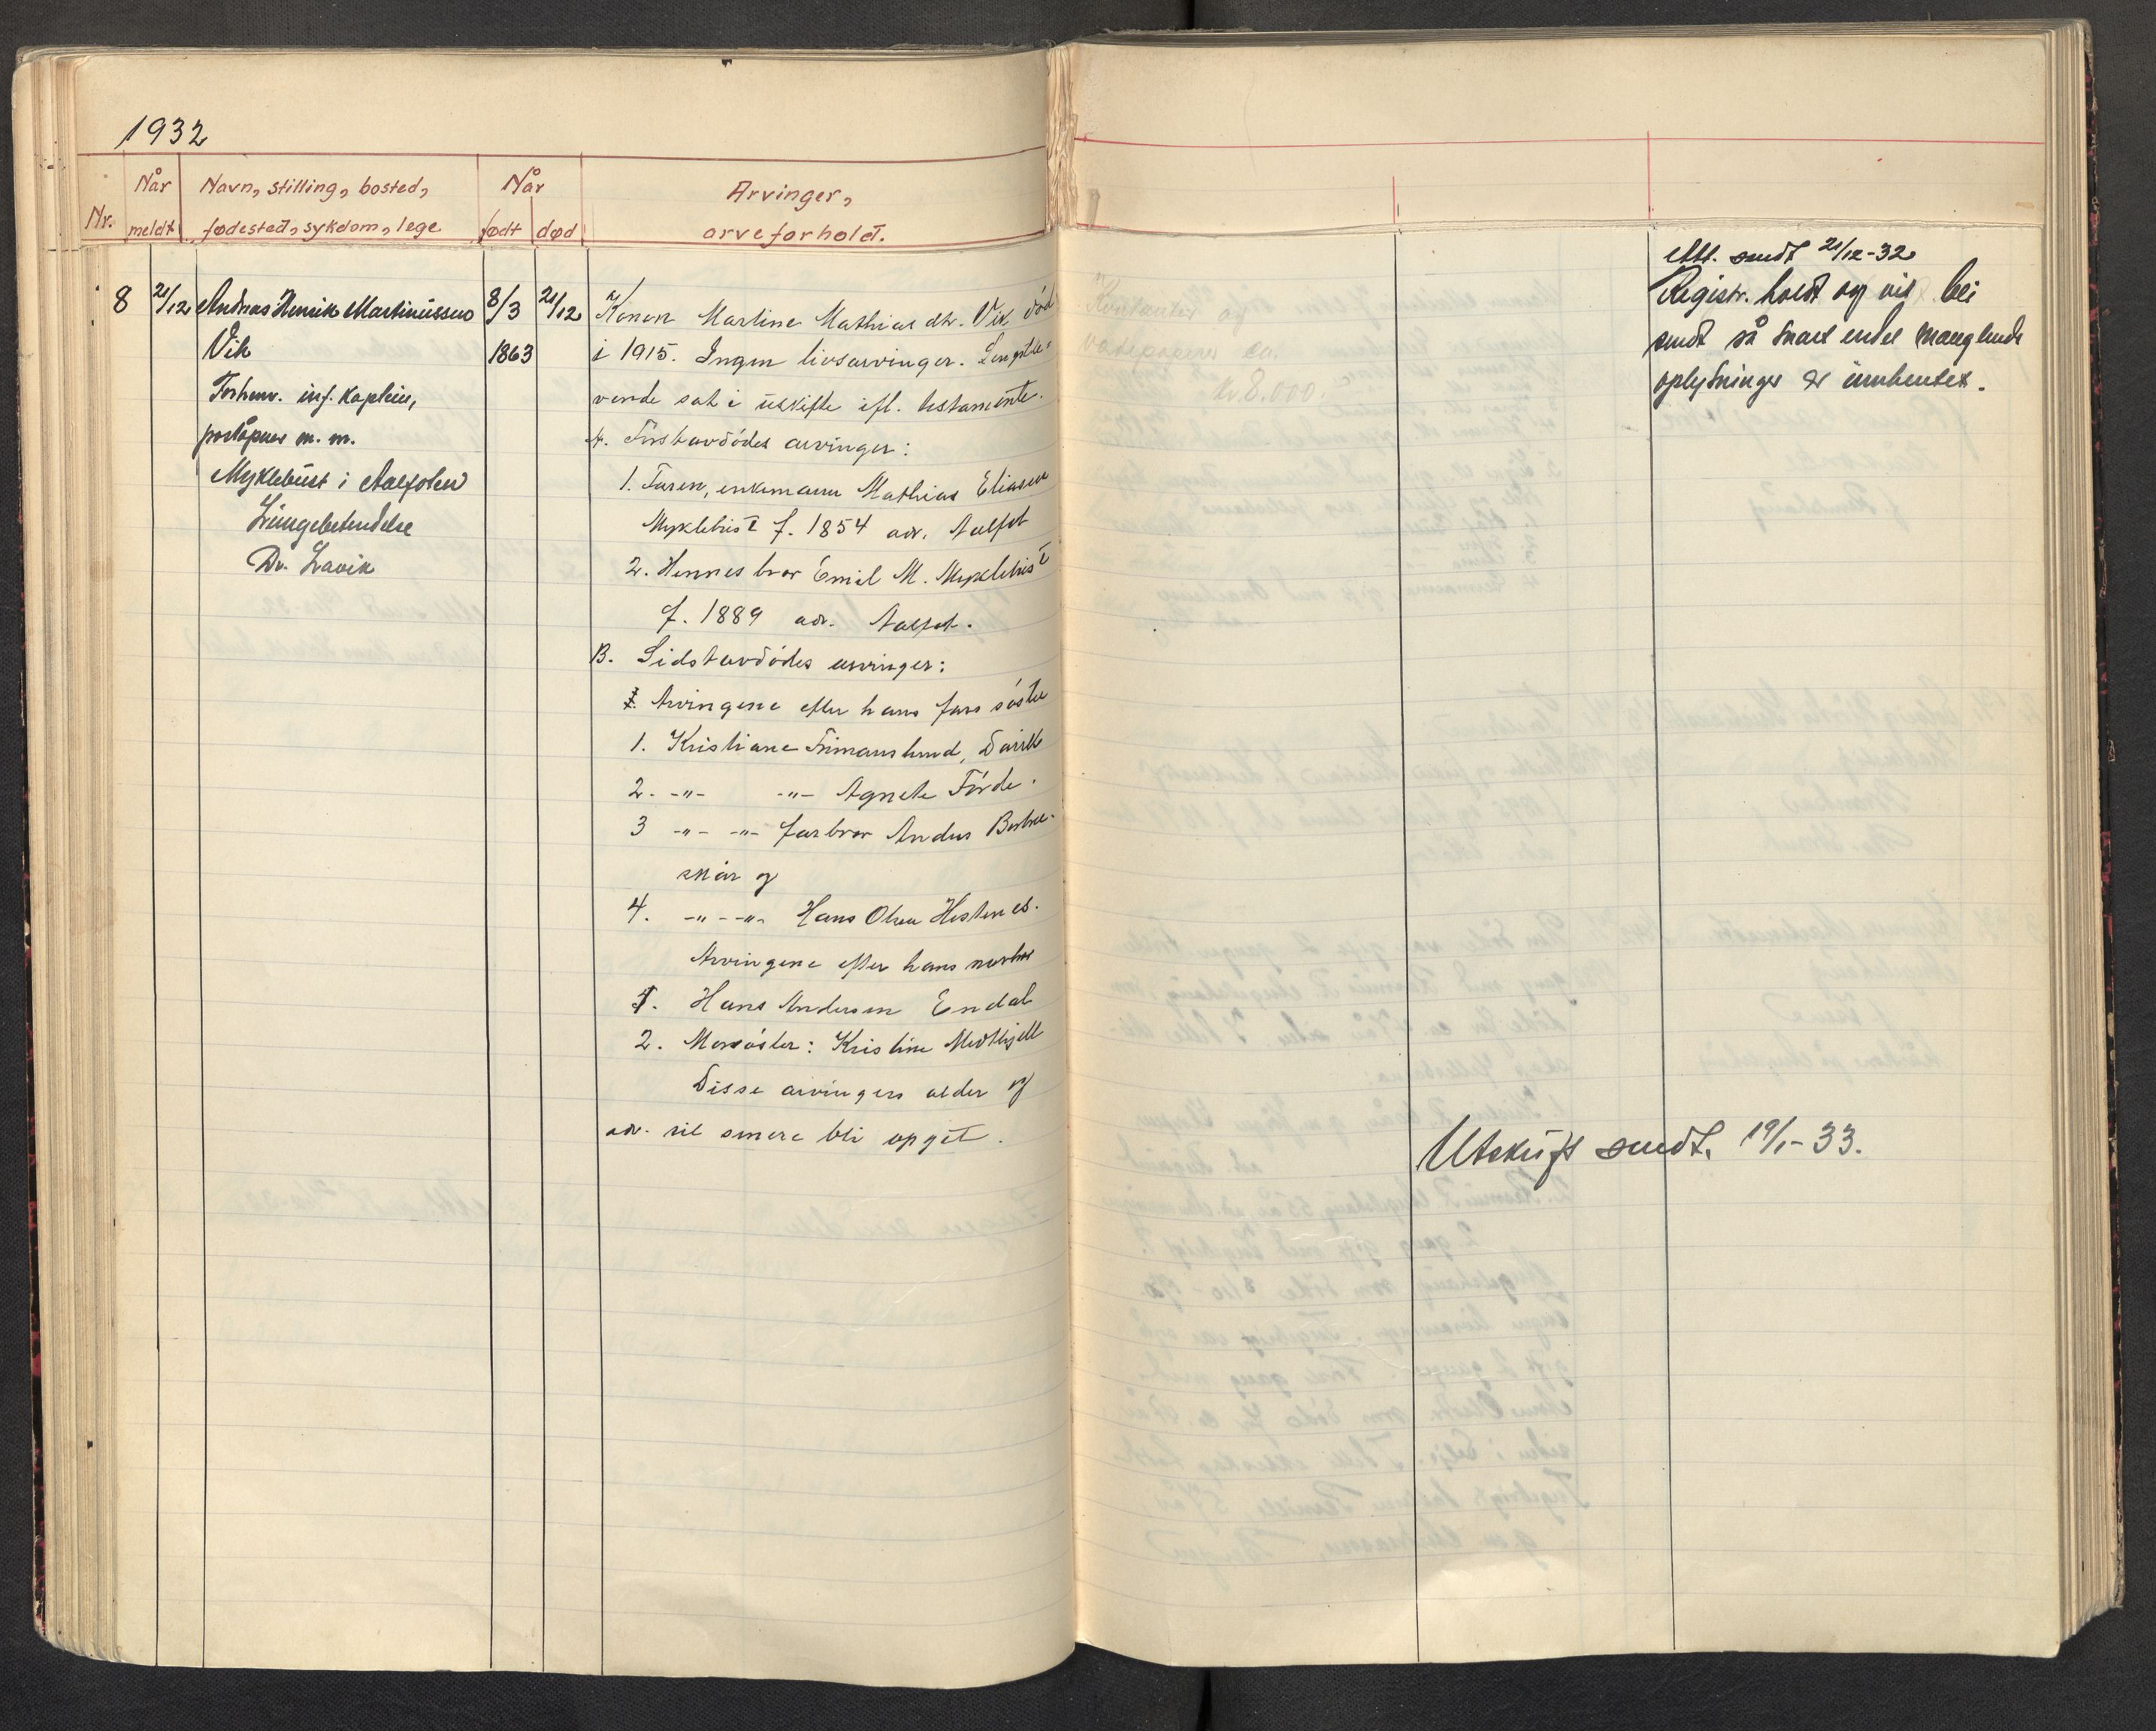 1932
Nr.
Når
meldt
Navn, stilling, bosted,
fødested, sykdom, lege
Når
født død
Arvinger,
arveforhold.
8 21/12 Andreas Henrik Martinussen 8/3 21/12
Vik 1863
Forhenv. inf. kaptein,
poståpner m. m.
Myklebust i Aalfoten
Lungebetendelse
Dr. Lavik
Konen Martine Mathias dtr. Vik, død
i 1915. Ingen livsarvinger. Lengstle-
vende sat i uskifte ifl. testamente.
A. Først avdødes arvinger:
1. Faren, enkemann Mathias Eliasen
Myklebust f. 1854 adr. Aalfot
2. Hennes bror Emil M. Myklebust
f. 1889 adr. Aalfot.
B. Sidst avdødes arvinger:
Arvingene efter hans fars søster
1. Kristiane Frimanslund, Davik
2. -"- -"- Agnete Førde.
3 -"- -"- farbror Anders
skår og
4. -"- -"- Hans Olsen Hestenes.
Arvingene efter hans morbror
1. Hans Andersen Endal
2. Morsøster: Kristine
Disse arvingers alder og
adr. vil senere bli opgit.
Kontanter og
verdipapirer ca.
kr 8.000.
Att. sendt 21/12-32
Registr. holdt og vil bli
sendt så snart endel manglende
oplysninger er innhentet.
Utskrift sendt. 19/1-33.